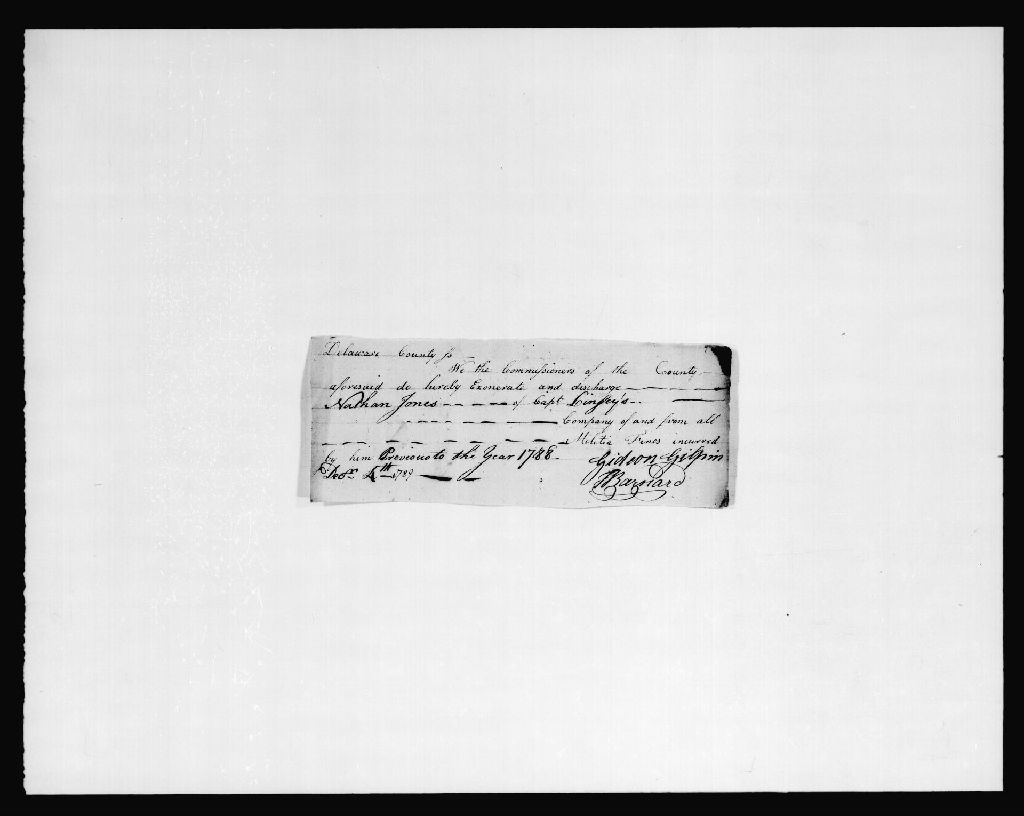 Delaware County ss
We the Commissioners of the County
aforesaid do hereby Exonerate and discharge
Nathan Jones of Capt Linsey's
Company of and from all
Militia Fines incurred
by him Preveous to the Year 1788
Gideon Gilpin
Decr. 4th 1789
Barnard